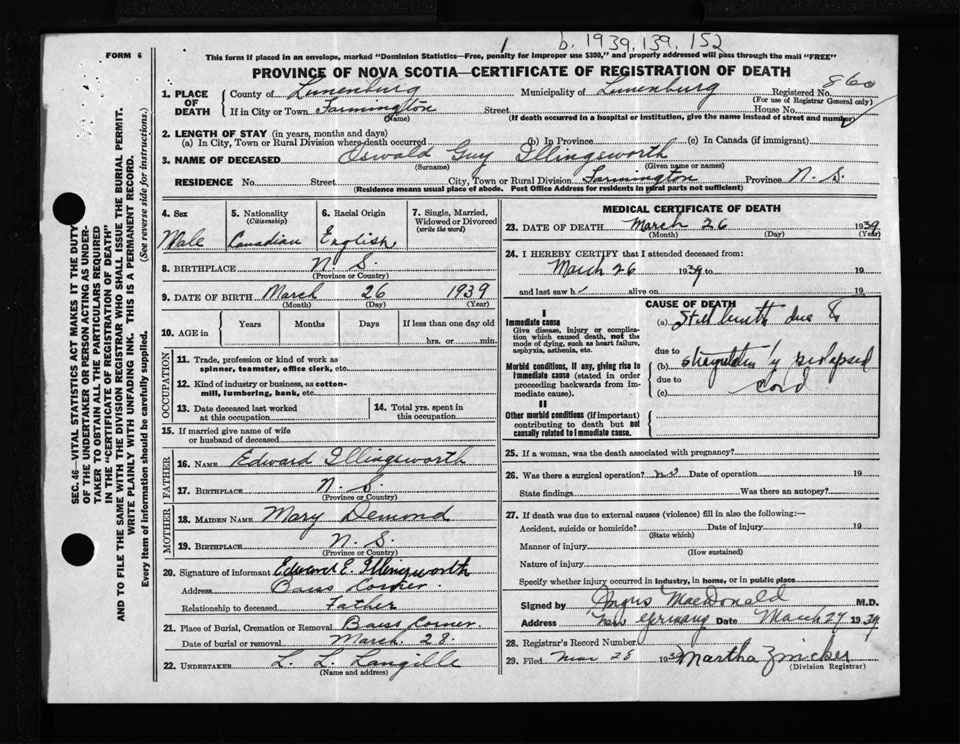 1 b. 1939. 139. 152
FORM 6
This form if placed in an envelope, marked "Dominion Statistics—Free, penalty for improper use $300," and properly addressed will pass through the mail "FREE"
PROVINCE OF NOVA SCOTIA—CERTIFICATE OF REGISTRATION OF DEATH
860
1. PLACE OF DEATH { County of Lunenburg Municipality of Lunenburg Registered No.
(For use of Registrar General only)
If in City or Town Farmington Street House No.
(Name) (If death occurred in a hospital or institution, give the name instead of street and number)
2. LENGTH OF STAY (in years, months and days)
(a) In City, Town or Rural Division where death occurred (b) In Province (c) In Canada (if immigrant)
3. NAME OF DECEASED Oswald Guy Illingsworth
(Surname) (Given name or names)
RESIDENCE No. Street City, Town or Rural Division Farmington Province N. S.
(Residence means usual place of abode. Post Office Address for residents in rural parts not sufficient)
SEC. 46—VITAL STATISTICS ACT MAKES IT THE DUTY
OF THE UNDERTAKER OR PERSON ACTING AS UNDER-
TAKER TO OBTAIN ALL THE PARTICULARS REQUIRED
IN THE "CERTIFICATE OF REGISTRATION OF DEATH"
AND TO FILE THE SAME WITH THE DIVISION REGISTRAR WHO SHALL ISSUE THE BURIAL PERMIT.
WRITE PLAINLY WITH UNFADING INK. THIS IS A PERMANENT RECORD.
Every item of information should be carefully supplied. (See reverse side for instructions.)
4. Sex 5. Nationality (Citizenship) 6. Racial Origin 7. Single, Married, Widowed or Divorced (write the word)
Male Canadian English
8. BIRTHPLACE N. S.
(Province or Country)
9. DATE OF BIRTH March 26 1939
(Month) (Day) (Year)
10. AGE in Years Months Days If less than one day old
hrs. or min.
OCCUPATION
11. Trade, profession or kind of work as
spinner, teamster, office clerk, etc.
12. Kind of industry or business, as cotton-
mill, lumbering, bank, etc.
13. Date deceased last worked at this occupation 14. Total yrs. spent in this occupation
15. If married give name of wife
or husband of deceased
FATHER
16. NAME Edward Illingsworth
17. BIRTHPLACE N. S.
(Province or Country)
MOTHER
18. MAIDEN NAME Mary Demond
19. BIRTHPLACE N. S.
(Province or Country)
20. Signature of informant Edward E. Illingsworth
Address Corner
Relationship to deceased Father
21. Place of Burial, Cremation or Removal Corner
Date of burial or removal March 28.
22. UNDERTAKER L. L. Langille
(Name and address)
MEDICAL CERTIFICATE OF DEATH
23. DATE OF DEATH March 26 1939
(Month) (Day) (Year)
24. I HEREBY CERTIFY that I attended deceased from:
March 26 1939 to 19
and last saw h alive on 19
CAUSE OF DEATH
I
Immediate cause
Give disease, injury or complica-
tion which caused death, not the
mode of dying, such as heart failure,
asphyxia, asthenia, etc.
(a) Stillbirth due to
due to
Morbid conditions, if any, giving rise to
immediate cause (stated in order
proceeding backwards from im-
mediate cause).
(b) strangulation by prolapsed
due to cord
(c)
II
Other morbid conditions (if important)
contributing to death but not
causally related to immediate cause.
25. If a woman, was the death associated with pregnancy?
26. Was there a surgical operation? no Date of operation 19
State findings Was there an autopsy?
27. If death was due to external causes (violence) fill in also the following:—
Accident, suicide or homicide? Date of injury 19
(State which)
Manner of injury
(How sustained)
Nature of injury
Specify whether injury occurred in industry, in home, or in public place
Signed by Angus MacDonald M.D.
Address New Germany Date March 27 1939
28. Registrar's Record Number
29. Filed Mar 28 1939 Martha Zwicker
(Division Registrar)